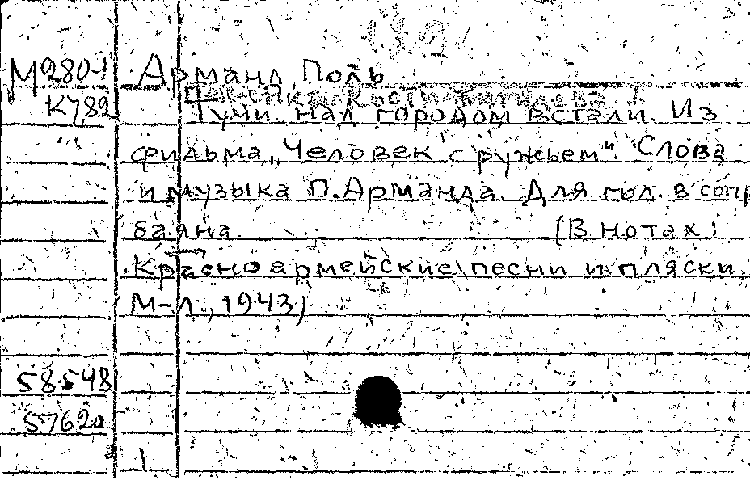 М2801 Арманд Поль
К782 Тучи над городом встали. Из
фильма „Человек с ружьем". Слова
и музыка П. Арманда. Для гол. в сопр
баяна. (В нотах:
Красноармейские песни и пляски.
М-Л., 1943)
58548
57620